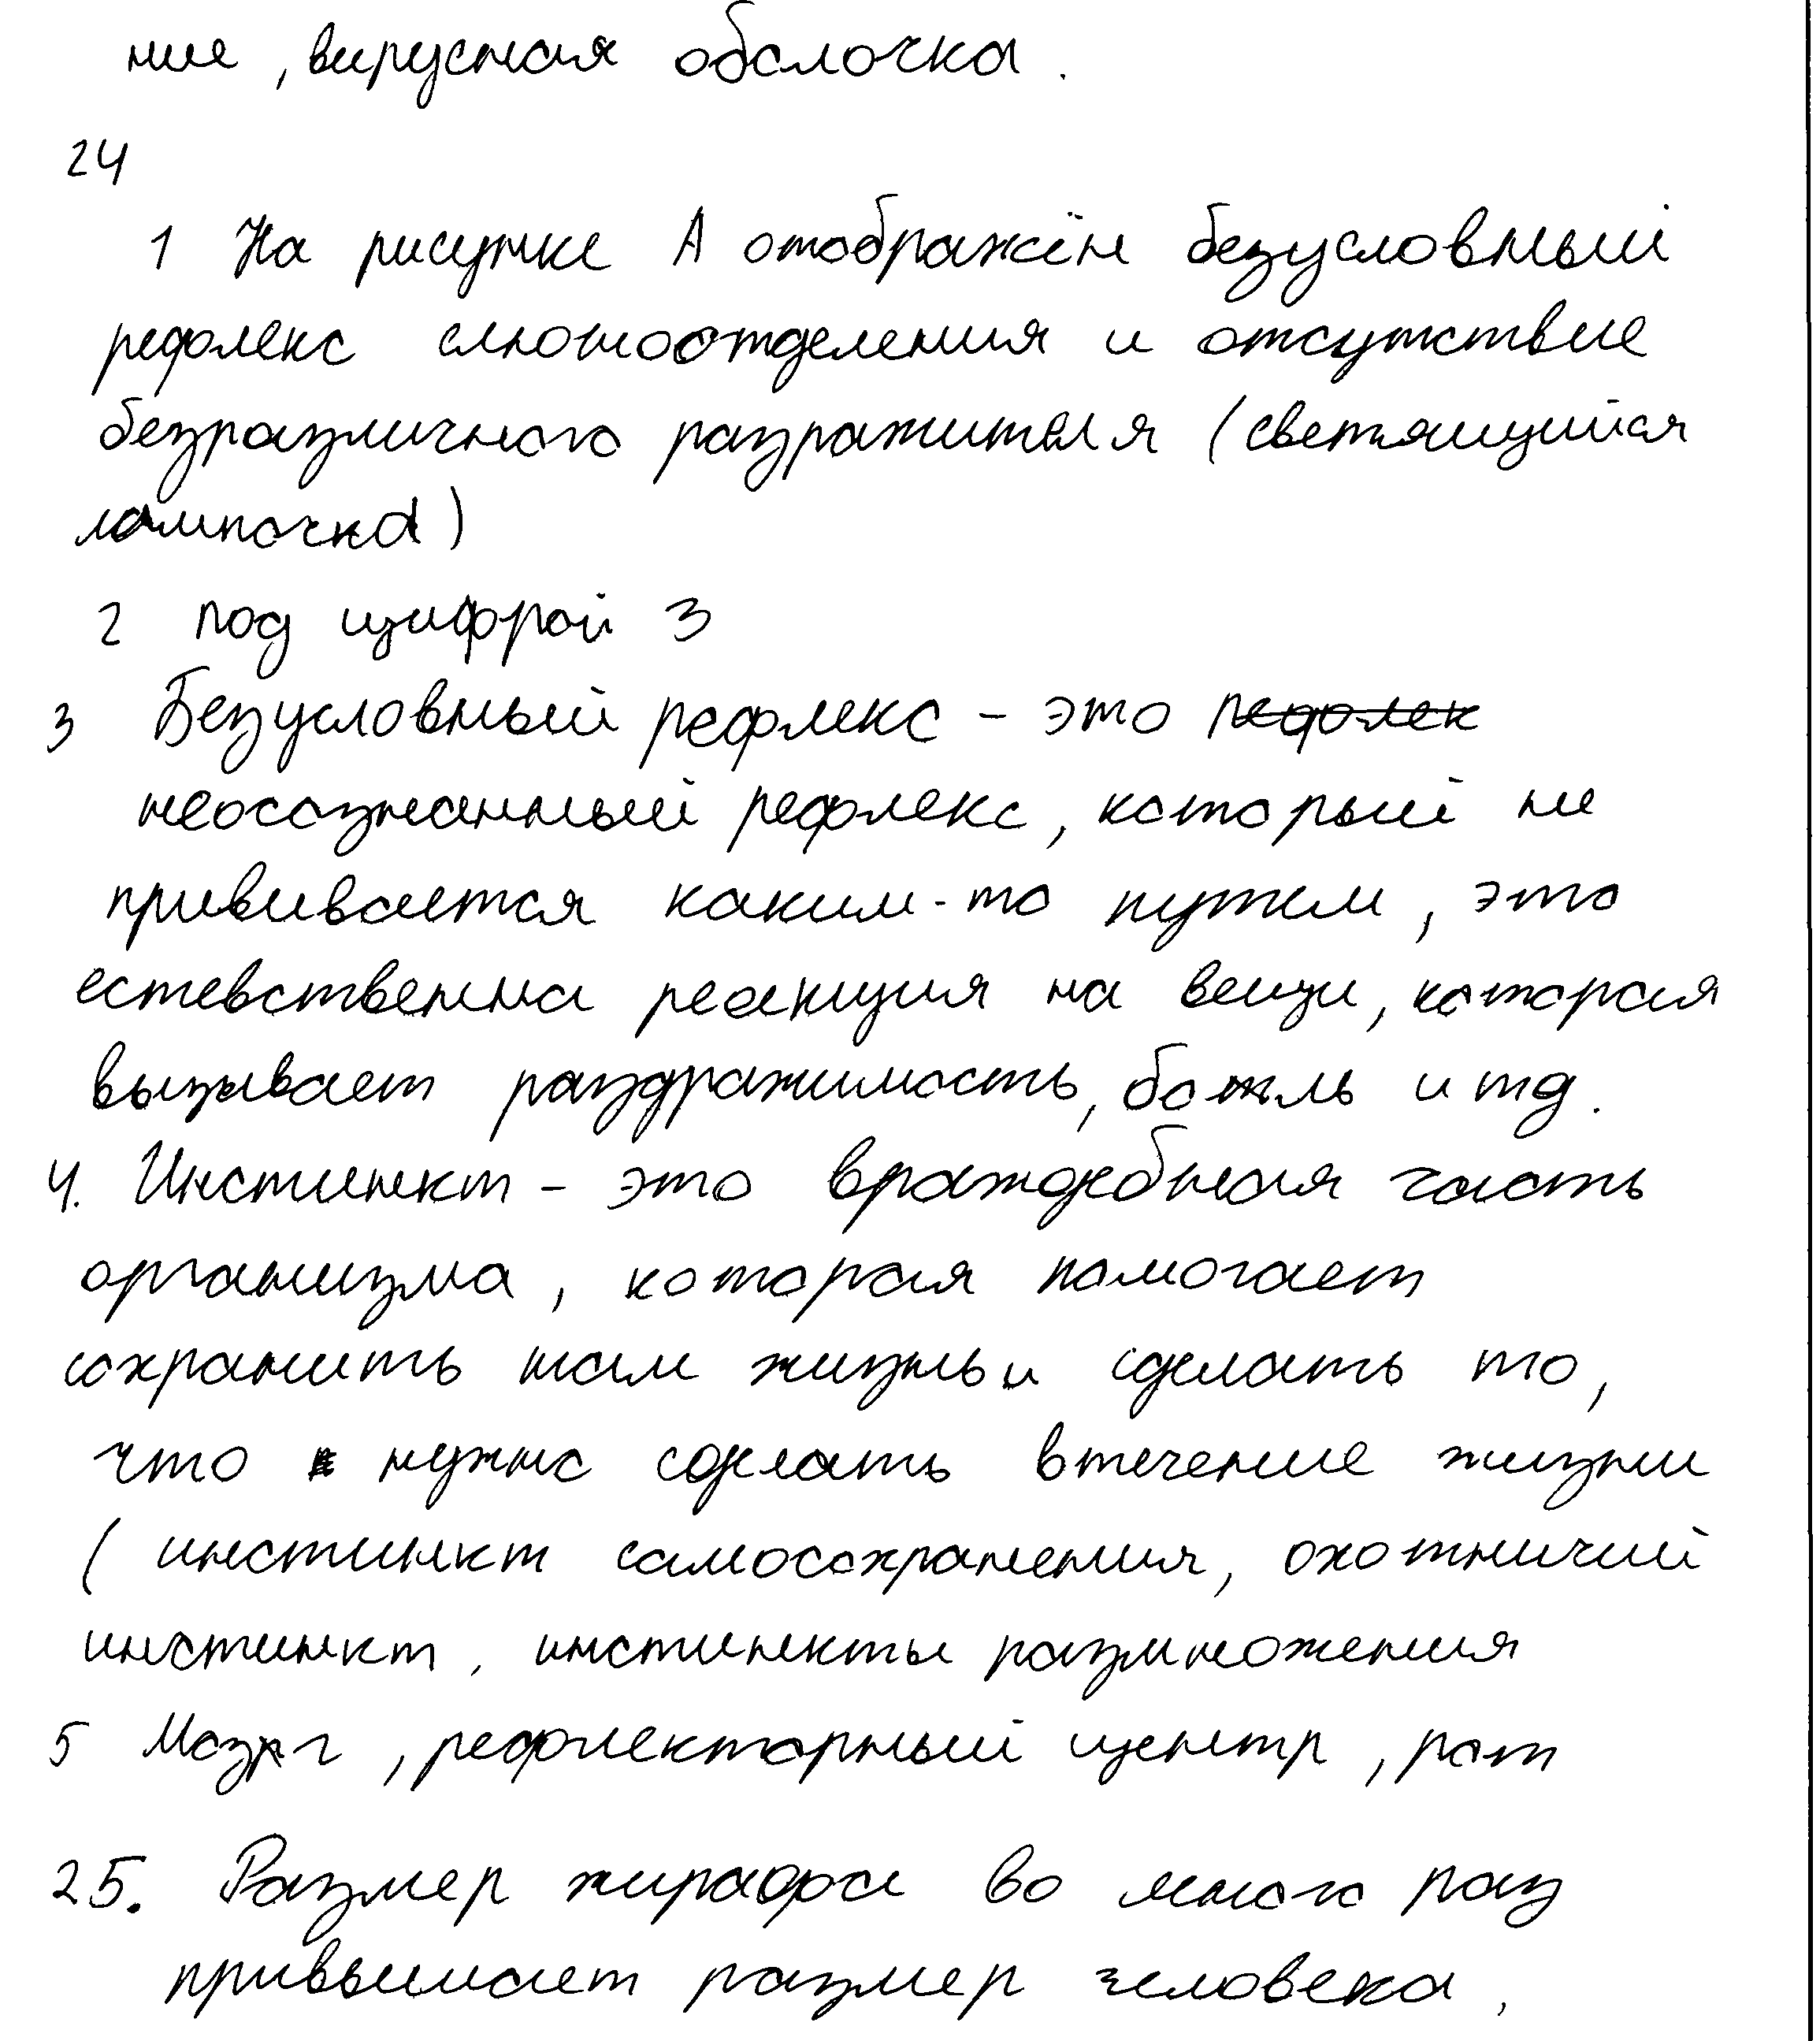 ние, вирусная оболочка.
24
1 На рисунке А отображён безусловный
рефлекс слюноотделения и отсутствие
безразличного разражителя (светящийся
лампочка)
2 под цифрой 3
3 Безусловный рефлекс - это рефлек
неосознанный рефлекс, который не
прививается каким-то путем, это
естевственна реакция на вещи, которая
вызывает раздражимость, боль и тд.
4. Инстинкт - это враждебная часть
организма, которая помогает
сохранить нам жизнь и сделать то,
что нужно сделать втечение жизни
( инстинкт самосохранения, охотничий
инстинкт, инстинкты размножения
5 Мозг, рефлекторный центр, рот
25. Размер жирафа во много раз
привышает размер человека,